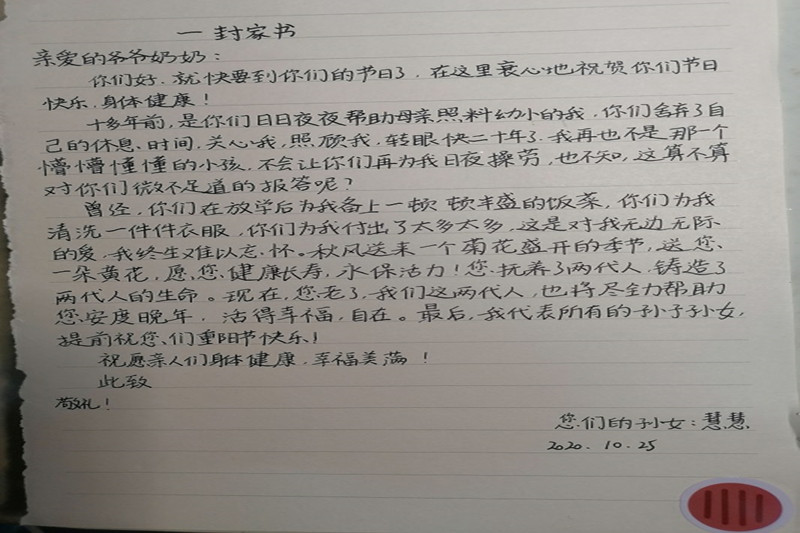 一封家书
亲爱的爷爷奶奶:
你们好.就快要到你们的节日了,在这里衷心地祝贺你们节日
快乐,身体健康!
十多年前,是你们日日夜夜帮助母亲照料幼小的我,你们舍弃了自
己的休息、时间,关心我,照顾我,转眼快二十年了.我再也不是那一个
懵懵懂懂的小孩,不会让你们再为我日夜操劳,也不知,这算不算
对你们微不足道的报答呢?
曾经,你们在放学后为我备上一顿顿丰盛的饭菜,你们为我
清洗一件件衣服,你们为我付出了太多太多,这是对我无边无际
的爱,我终生难以忘怀。秋风送来一个菊花盛开的季节,送您
一朵黄花,愿您健康长寿,永保活力!您抚养了两代人,铸造了
两代人的生命。现在,您老了,我们这两代人,也将尽全力帮助
您安度晚年,活得幸福,自在。最后,我代表所有的孙子孙女,
提前祝您们重阳节快乐!
祝愿亲人们身体健康,幸福美满!
此致
敬礼!
您们的孙女:慧慧
2020.10.25